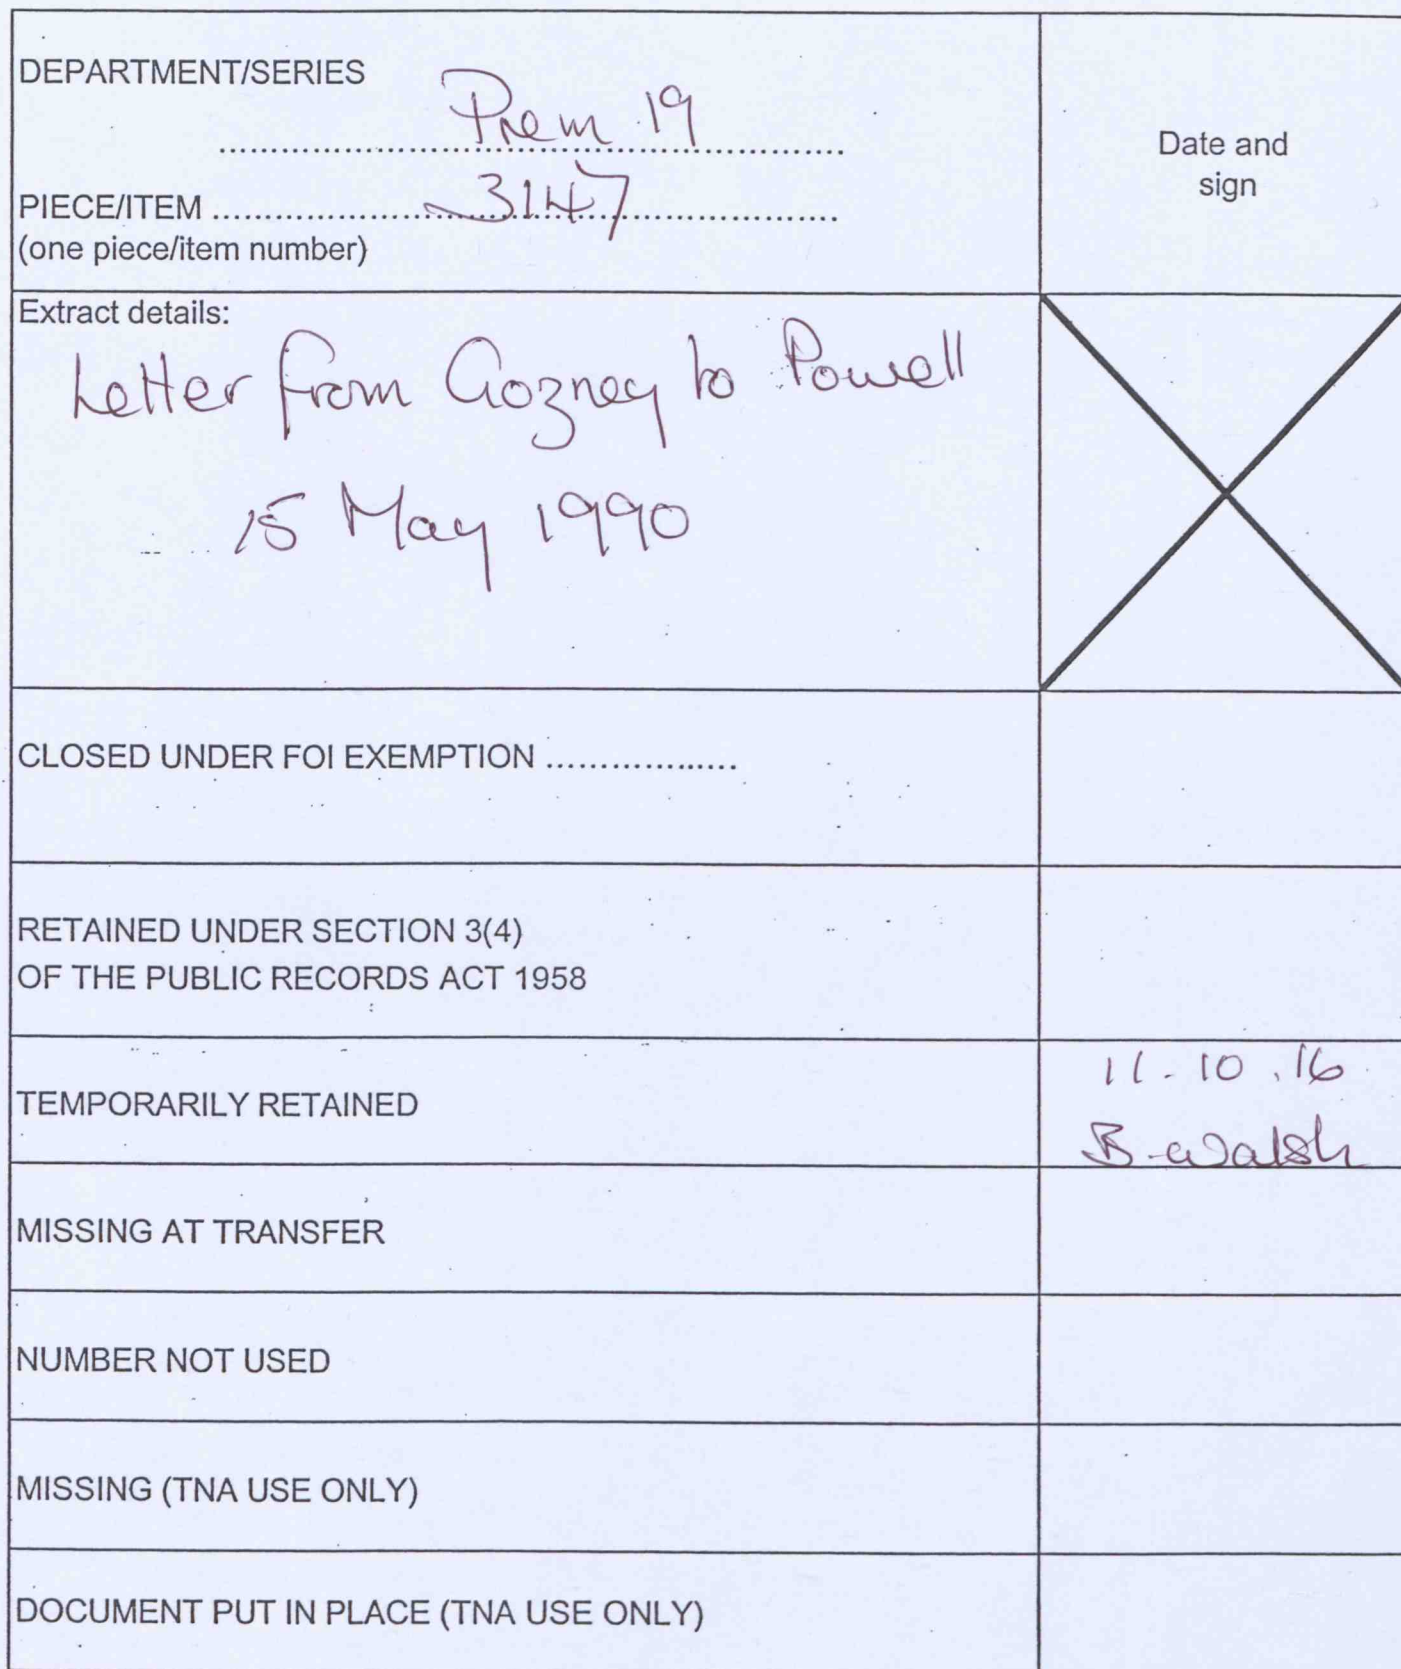 DEPARTMENT/SERIES
Prem 19
Date and
sign
PIECE/ITEM 3147
(one piece/item number)
Extract details:
Letter from Gozney to Powell
15 May 1990
CLOSED UNDER FOI EXEMPTION ..................
RETAINED UNDER SECTION 3(4)
OF THE PUBLIC RECORDS ACT 1958
TEMPORARILY RETAINED
11.10.16
B. Walsh
MISSING AT TRANSFER
NUMBER NOT USED
MISSING (TNA USE ONLY)
DOCUMENT PUT IN PLACE (TNA USE ONLY)